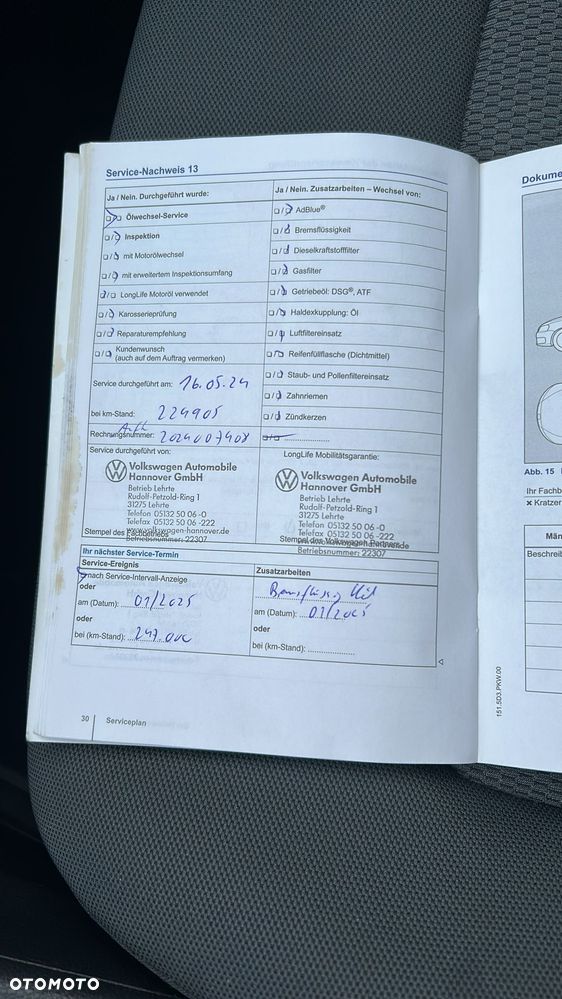 Service-Nachweis 13
Ja / Nein. Durchgeführt wurde:
Ölwechsel-Service
Inspektion
mit Motorölwechsel
mit erweitertem Inspektionsumfang
LongLife Motoröl verwendet
Karosserieprüfung
Reparaturempfehlung
Kundenwunsch
(auch auf dem Auftrag vermerken)
Service durchgeführt am: 16.05.24
bei km-Stand: 224905
Rechnungsnummer: 2024007408
Service durchgeführt von:
Volkswagen Automobile
Hannover GmbH
Betrieb Lehrte
Rudolf-Petzold-Ring 1
31275 Lehrte
Telefon 05132 50 06 -0
Telefax 05132 50 06 -222
www.volkswagen-hannover.de
Stempel des Fachbetriebs
Betriebsnummer: 22307
Ja / Nein. Zusatzarbeiten – Wechsel von:
AdBlue®
Bremsflüssigkeit
Dieselkraftstofffilter
Gasfilter
Getriebeöl: DSG®, ATF
Haldexkupplung: Öl
Luftfiltereinsatz
Reifenfüllflasche (Dichtmittel)
Staub- und Pollenfiltereinsatz
Zahnriemen
Zündkerzen
LongLife Mobilitätsgarantie:
Volkswagen Automobile
Hannover GmbH
Betrieb Lehrte
Rudolf-Petzold-Ring 1
31275 Lehrte
Telefon 05132 50 06 -0
Telefax 05132 50 06 -222
Stempel des Volkswagen Partners
Betriebsnummer: 22307
Ihr nächster Service-Termin
Service-Ereignis
nach Service-Intervall-Anzeige
oder
am (Datum): 01/2025
oder
bei (km-Stand): 247.000
Zusatzarbeiten
am (Datum): 01/2025
oder
bei (km-Stand):
30 Serviceplan
151.5D3.PKW.00
Dokume
Abb. 15
Ihr Fachb
× Kratzer
Män
Beschreib
OTOMOTO